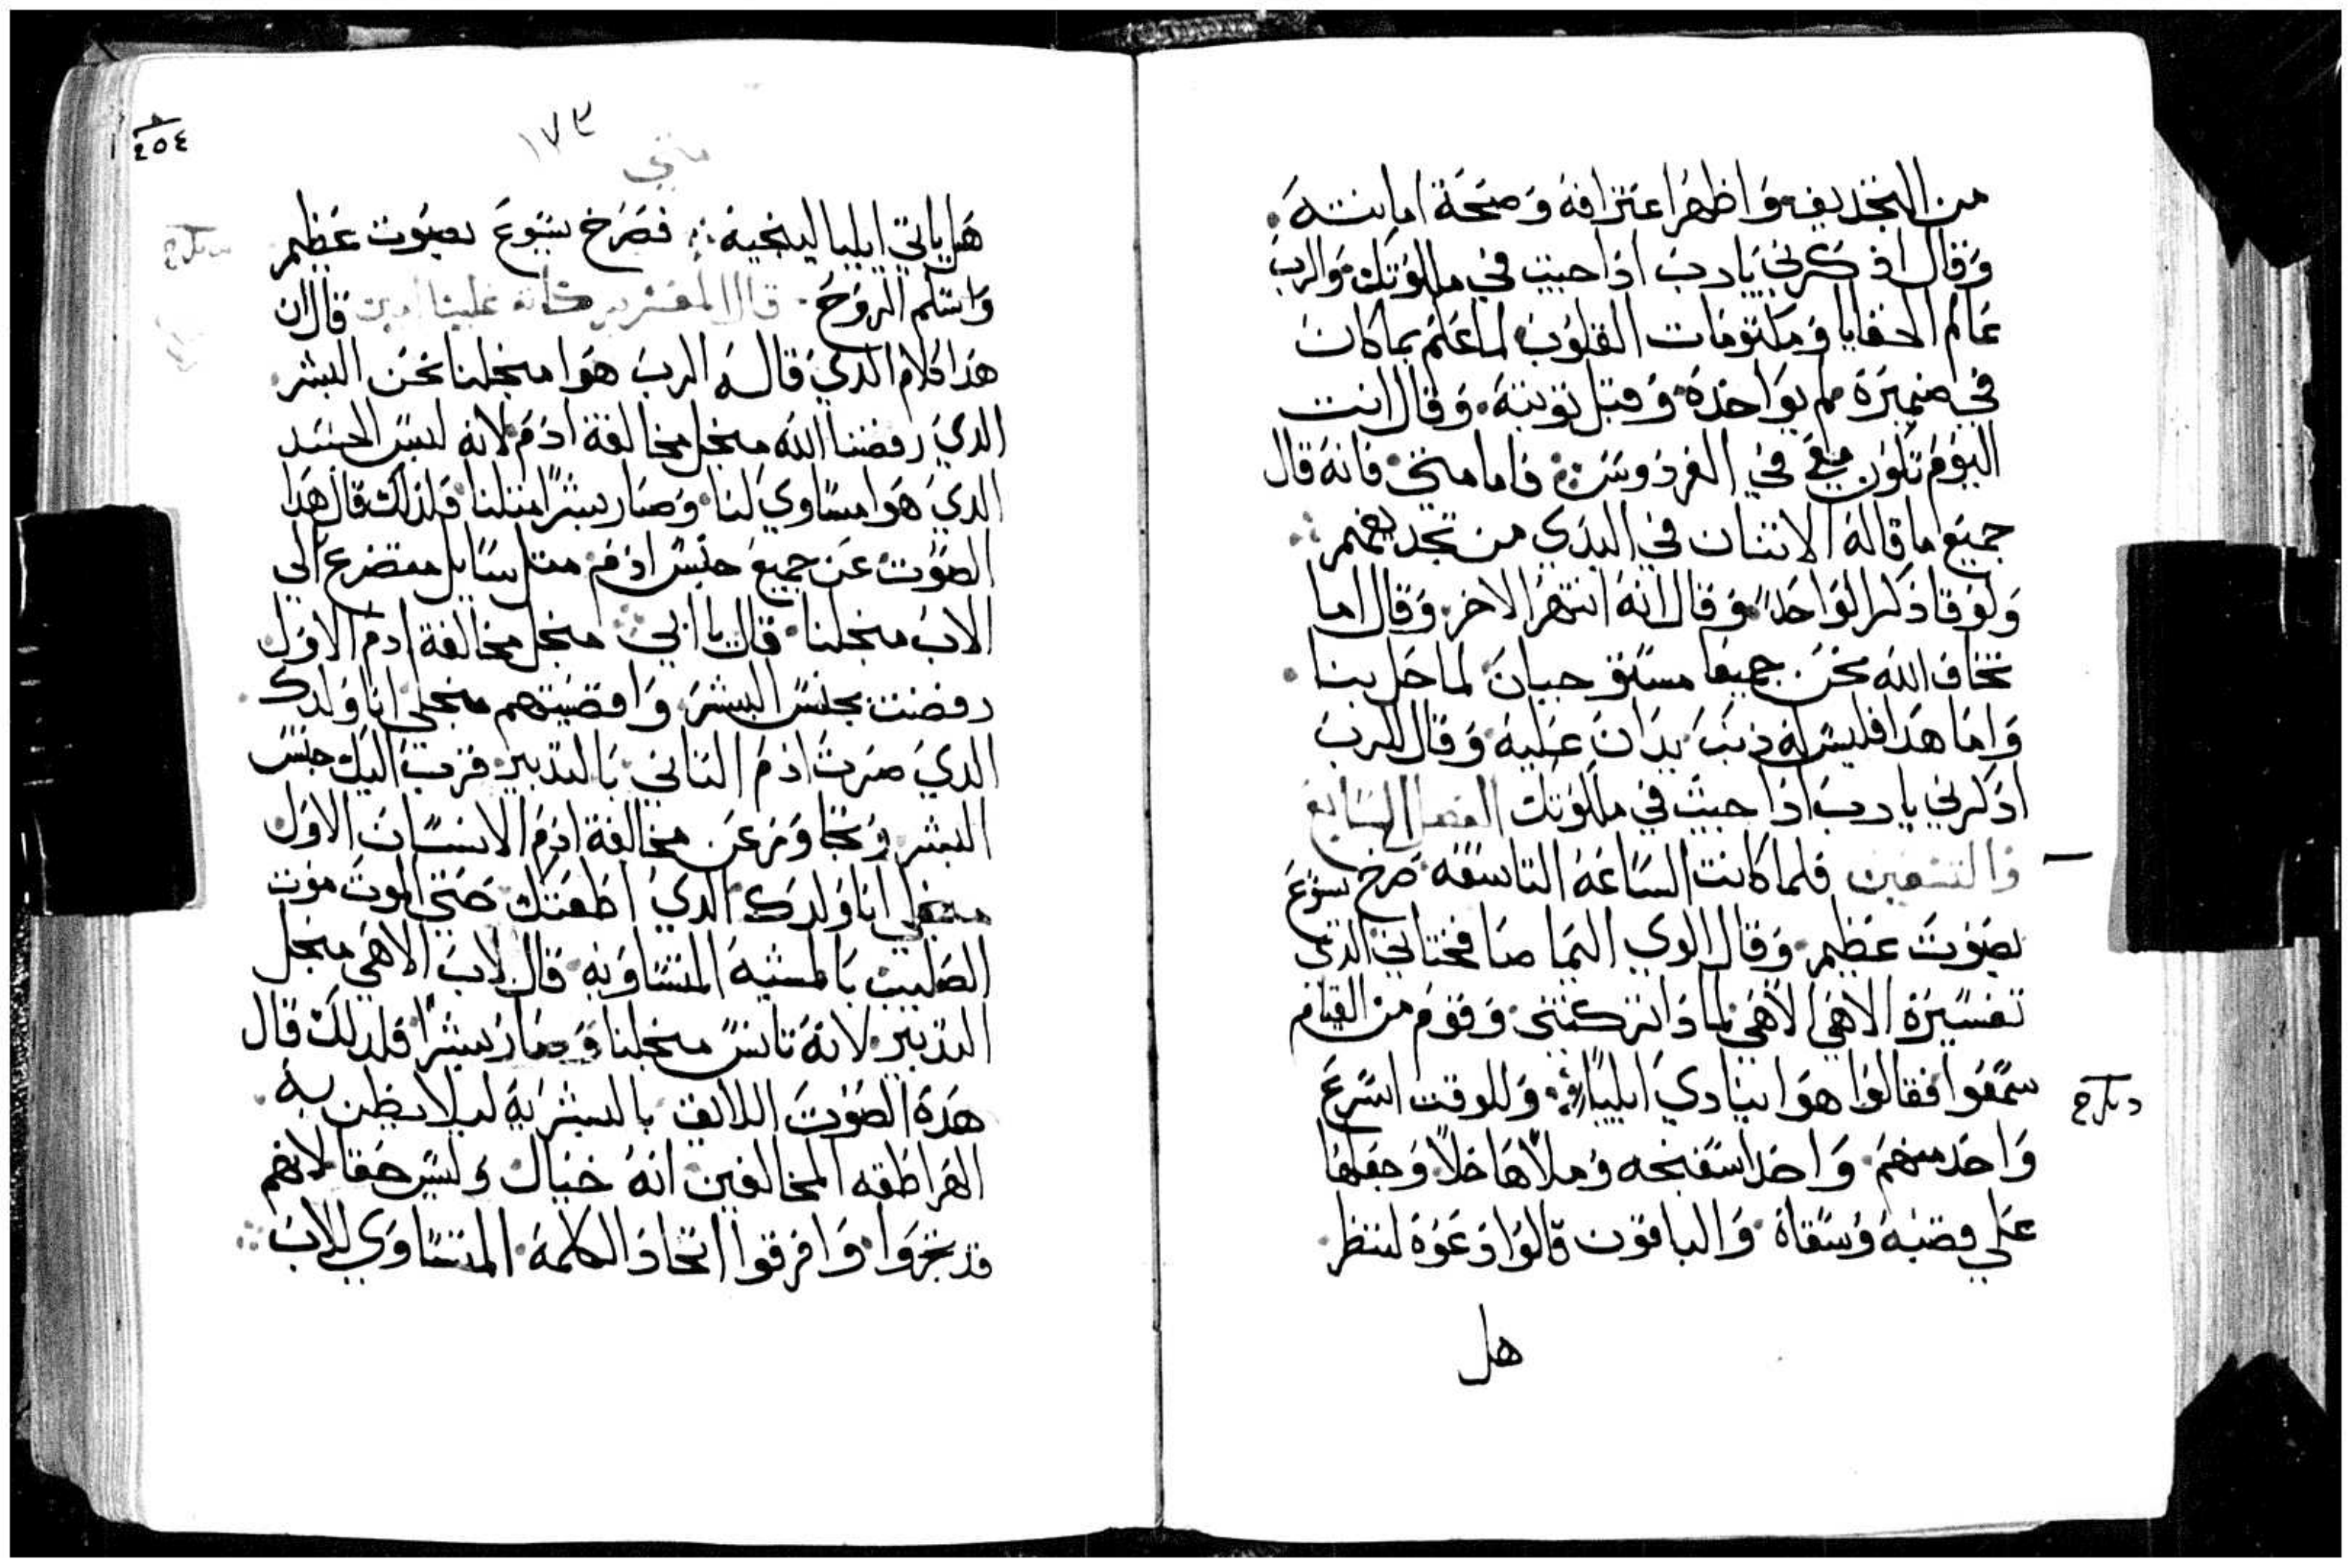 من التجديف واظهر اعترافه وصحة امانته
وقال اذكرني يارب اذا جيت في ملكوتك والرب
عالم الخفايا ومكتومات القلوب لما علم بما كان
في ضميره لم يواخذه وقبل توبته وقال انت
اليوم تكون معي في الفردوس فاما متي فانه قال
جميع ما قاله الاثنان في البدي من تجديفهم
ولوقا ذكر الواحد وقال انه انتهر الاخر وقال اما
تخاف الله نحن جميعا مستوجبان لما حل بنا
واما هذا فليس له ذنب يدان عليه وقال للرب
اذكرني يا رب اذا جيت في ملكوتك الفصل السابع
والتسعين فلما كانت الساعه التاسعه صرخ يسوع
بصوت عظيم وقال الوي اليما صافختاني الذي
تفسيره الاهي الاهي لما ذا تركتني وقوم من القيام
سمعوا فقالوا هوا ينادي ايليا وللوقت اسرع
واحد منهم واخد اسفنجه وملاها خلا وجعلها
علي قصبه وسقاه والباقون قالوا دعوه لننظر
هل
١٧٣
متي
٢٥٤
هل ياتي ايليا لينجيه فصرخ يسوع بصوت عظيم
واسلم الروح قال المفسر بركاته علينا امين قال ان
هدا كلام الدي قاله الرب هوا منجلنا نحن البشر
الدي رفضنا الله منجل مخالفة ادم لانه لبس الجسد
الدي هوا مساوي لنا وصار بشرا متلنا فلدلك قال هدا
الصوت عن جميع جنس ادم متل سايل متضرع الي
الاب منجلنا قال يا ابي منجل مخالفة ادم الاول
رفضت بجنس البشر واقصيتهم منجلي انا ولدك
الدي صرت ادم التاني بالتدبير قرب اليك جنس
البشر وتجاوز عن مخالفة ادم الانسان الاول
منجلي انا ولدك الدي اطعتك حتي الموت موت
الصليب بالمشيه المتساويه قال لاب الاهي منجل
التدبير لانه تانس منجلنا وصار بشرا فلدلك قال
هده الصوت اللايق بالبشريه ليلا يظن به
الهراطقه المخالفين انه خيال وليس حقا لانهم
قد تجروا وافرقوا اتحاد الكلمه المتساوي للاب